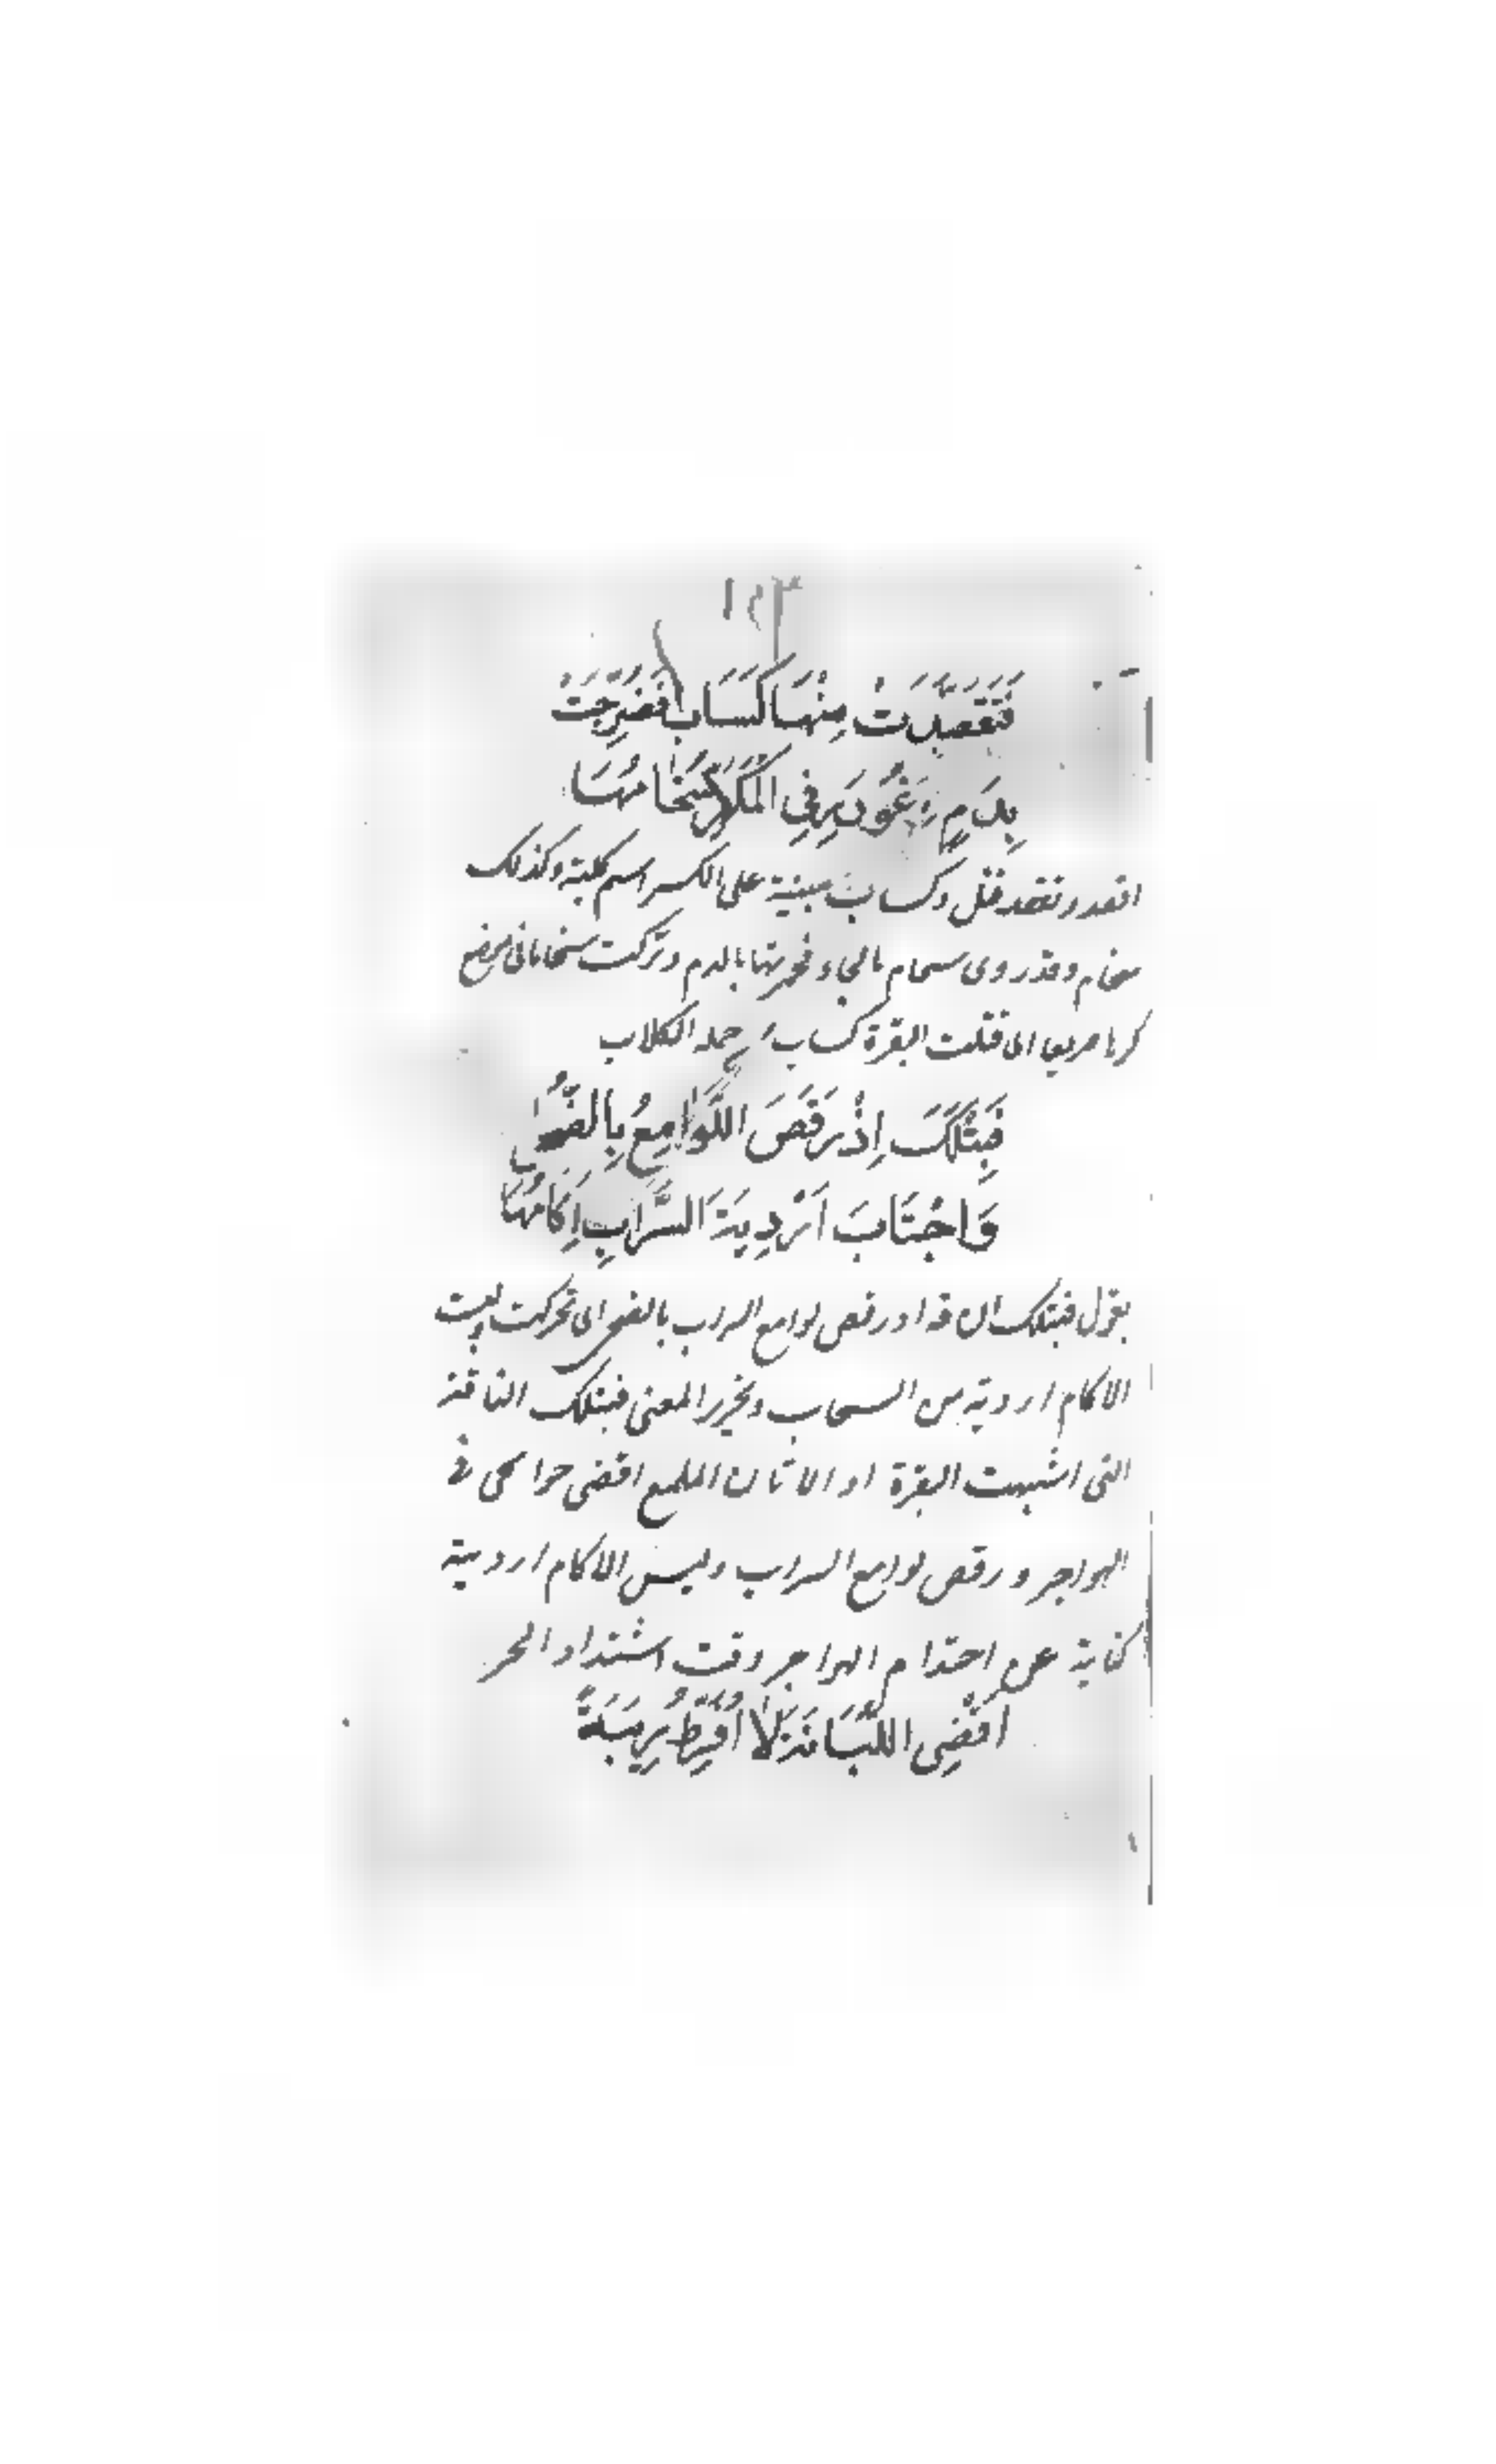 ١٥٣
فَتَقَصَّدَتْ مِنْهَا كَسَابِ فَضُرِّجَتْ
بِدَمٍ وَغُودِرَ فِي الْمَكَرِّ سُخَامُهَا
اقصد وتقصد قتل وكساب مبنية على الكسر اسم كلبة وكذلك
سخام وقد روى سحام بالحاء فضرجتها بالدم وتركت سخاما فى موضع
كرها صريعا اى قتلت البقرة كساب من جملة الكلاب
فَبِتْلْكَ اِذْ رَقَصَ اللَّوَامِعُ بِالضُّحٰى
وَاجْتَابَ اَرْدِيَةَ السَّرَابِ اِكَامُهَا
يقول فبتلك الناقة اذ رقص لوامع السراب بالضحى اى تحركت لبست
الاكام اردية من السحاب وتحرير المعنى فبتلك الناقة
التى اشبهت البقرة او الاتان الملمع اقضى حوائجى فى
الهواجر ورقص لوامع السراب وليس الاكام اردية
كناية عن احتدام الهواجر وقت اشتداد الحر
اَقْضِى اللُّبَانَةَ لَا اُفَرِّطُ رِيبَةً